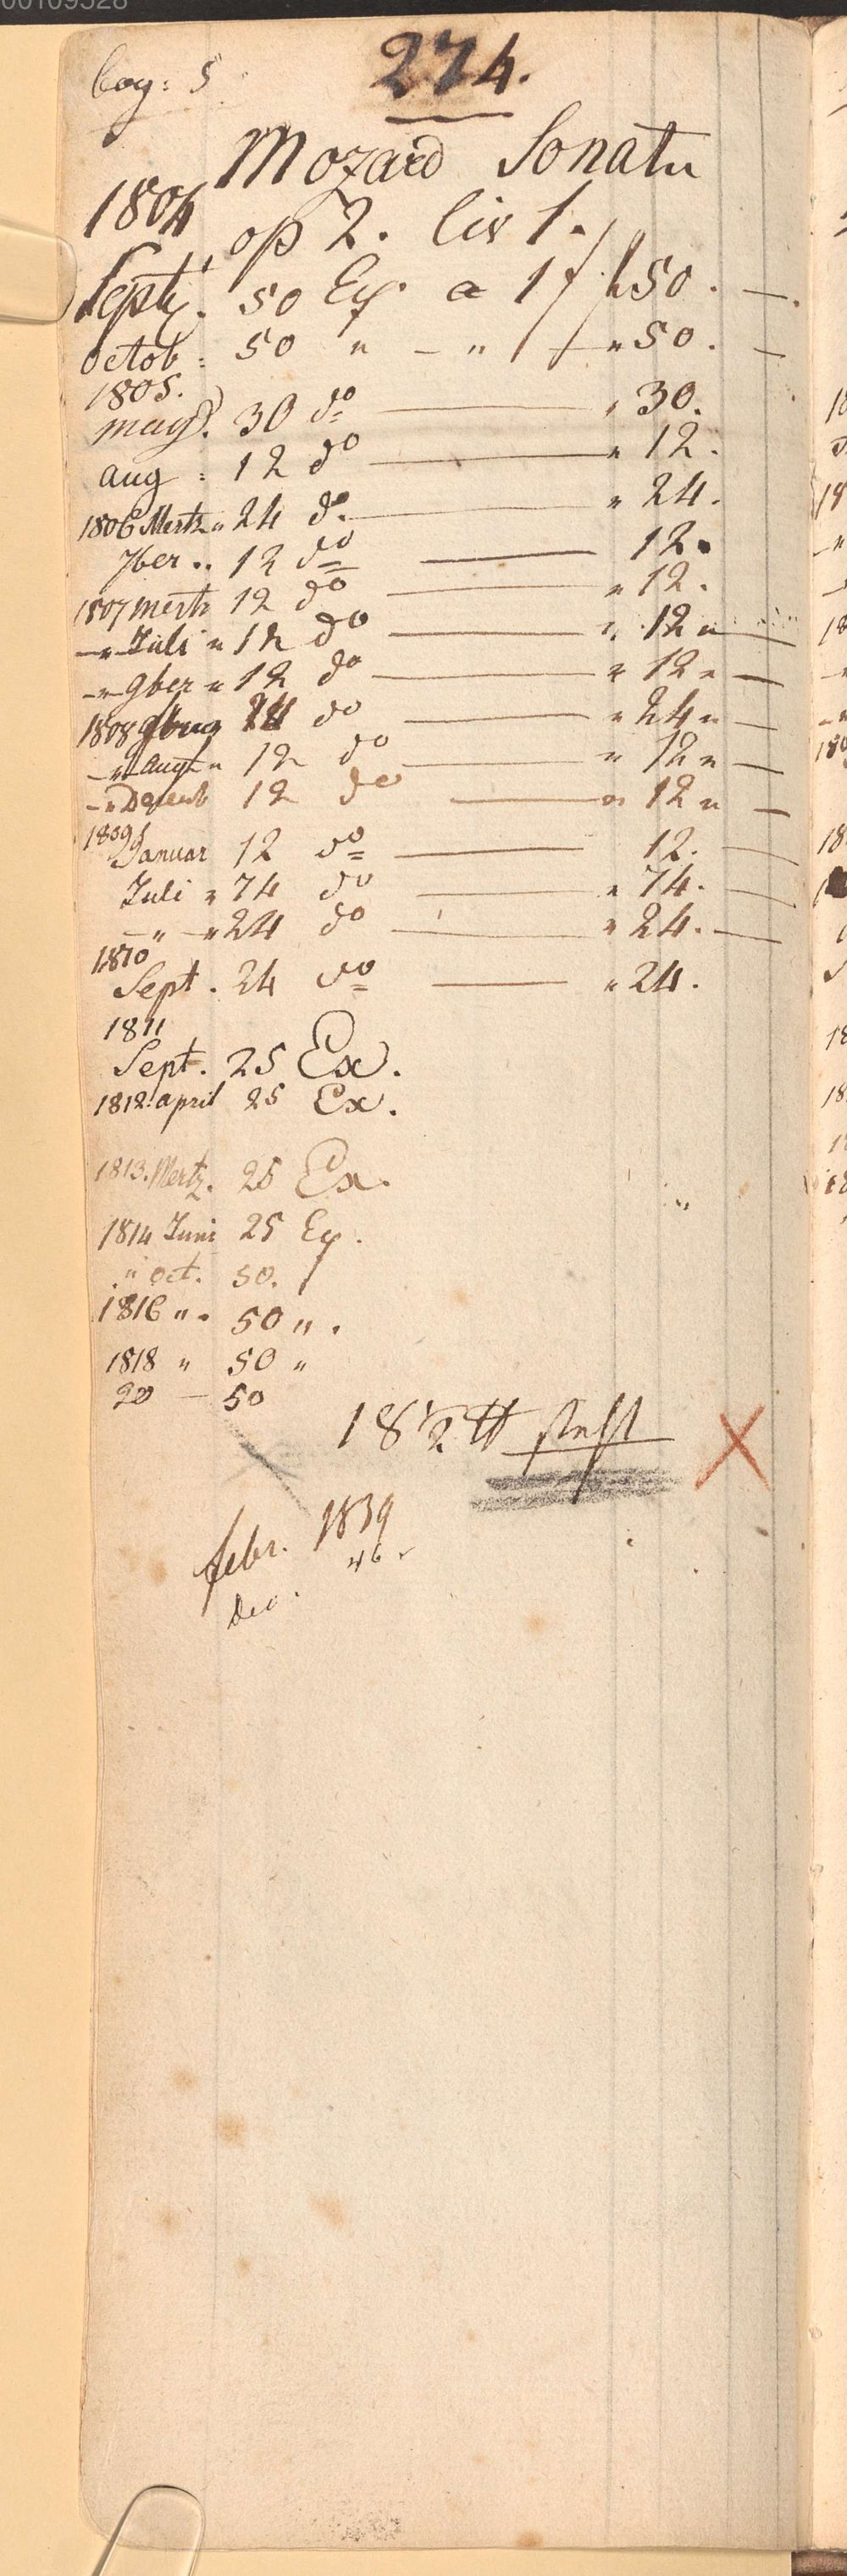 00109528
bog: 5 274.
Mozard Sonata
1804 op 2. liv 1.
Septb. 50 Ex. a 1 f f 50. —.
octob: 50 " — " " 50. —
1805.
may. 30 do " 30.
aug: 12 do " 12.
1806 Mertz " 24 do. " 24.
7ber .. 12 do 12.
1807 mertz 12 do " 12.
—"— Juli " 12 do " 12 " —
—"— 9ber " 12 do " 12 " —
1808 24 do " 24 " —
—"— aug " 12 do " 12 " —
—"— Decemb 12 do " 12 " —
1809
Januar 12 do 12. —
Juli " 74 do " 74. —
—"— " 24 do " 24. —
1810
Sept. 24 do " 24.
1811
Sept. 25 Ex.
1812. april 25 Ex.
1813. Mertz. 25 Ex.
1814 Juni 25 Ex.
" oct. 50.
1816 " . 50 " .
1818 " 50 "
20 — 50
18 1/2 ℔
febr. 1839
Dec. 46